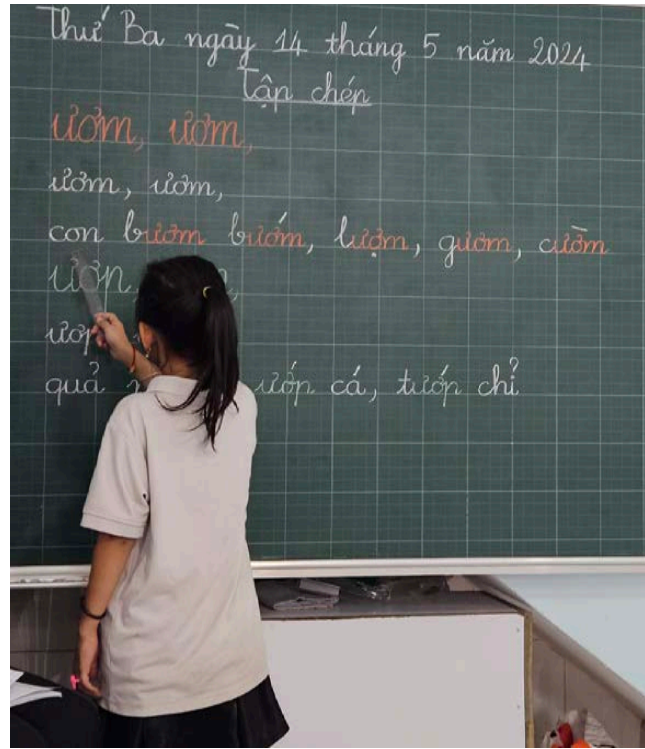 Thứ Ba ngày 14 tháng 5 năm 2024
Tập chép
ươm, ươm,
ươm, ươm,
con bươm bướm, lượm, gươm, cườm
ươp,
ươp
quả ướp cá, tướp chỉ